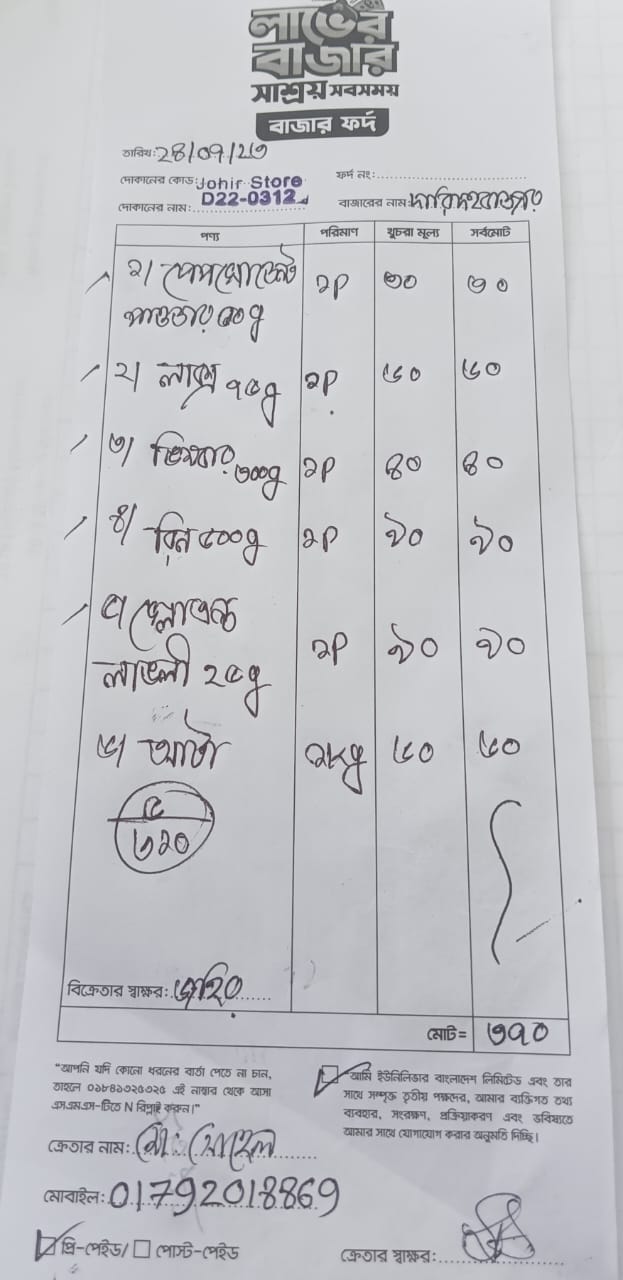 লাভের
বাজার
সাশ্রয় সবসময়
বাজার ফর্দ
তারিখ: 28/09/23
দোকানের কোড: Johir Store ফর্দ নং:
দোকানের নাম: D22-0312 বাজারের নাম:
পণ্য পরিমাণ খুচরা মূল্য সর্বমোট
১। পেপসোডেন্ট ১P ৩০ ৩০
পাওডার ৫০g
২। লাক্স ৭৫g ১P ৬০ ৬০
৩। ভিমবার ৩০০g ১P ৪০ ৪০
৪। রিন ৫০০g ১P ৯০ ৯০
৫। গ্লো এন্ড
লাভলী ২৫g ১P ৯০ ৯০
৬। আটা ১kg ৬০ ৬০
৫
৩১০
বিক্রেতার স্বাক্ষর: জহির
মোট= ৩৭০
"আপনি যদি কোনো ধরনের বার্তা পেতে না চান,
তাহলে ০১৮৪১০২৫০২৫ এই নাম্বার থেকে আসা
এসএমএস-টিতে N রিপ্লাই করুন।"
আমি ইউনিলিভার বাংলাদেশ লিমিটেড এবং তার
সাথে সম্পৃক্ত তৃতীয় পক্ষদের, আমার ব্যক্তিগত তথ্য
ব্যবহার, সংরক্ষণ, প্রক্রিয়াকরণ এবং ভবিষ্যতে
আমার সাথে যোগাযোগ করার অনুমতি দিচ্ছি।
ক্রেতার নাম: মো: সোহেল
মোবাইল: 01792018869
প্রি-পেইড/ পোস্ট-পেইড ক্রেতার স্বাক্ষর: